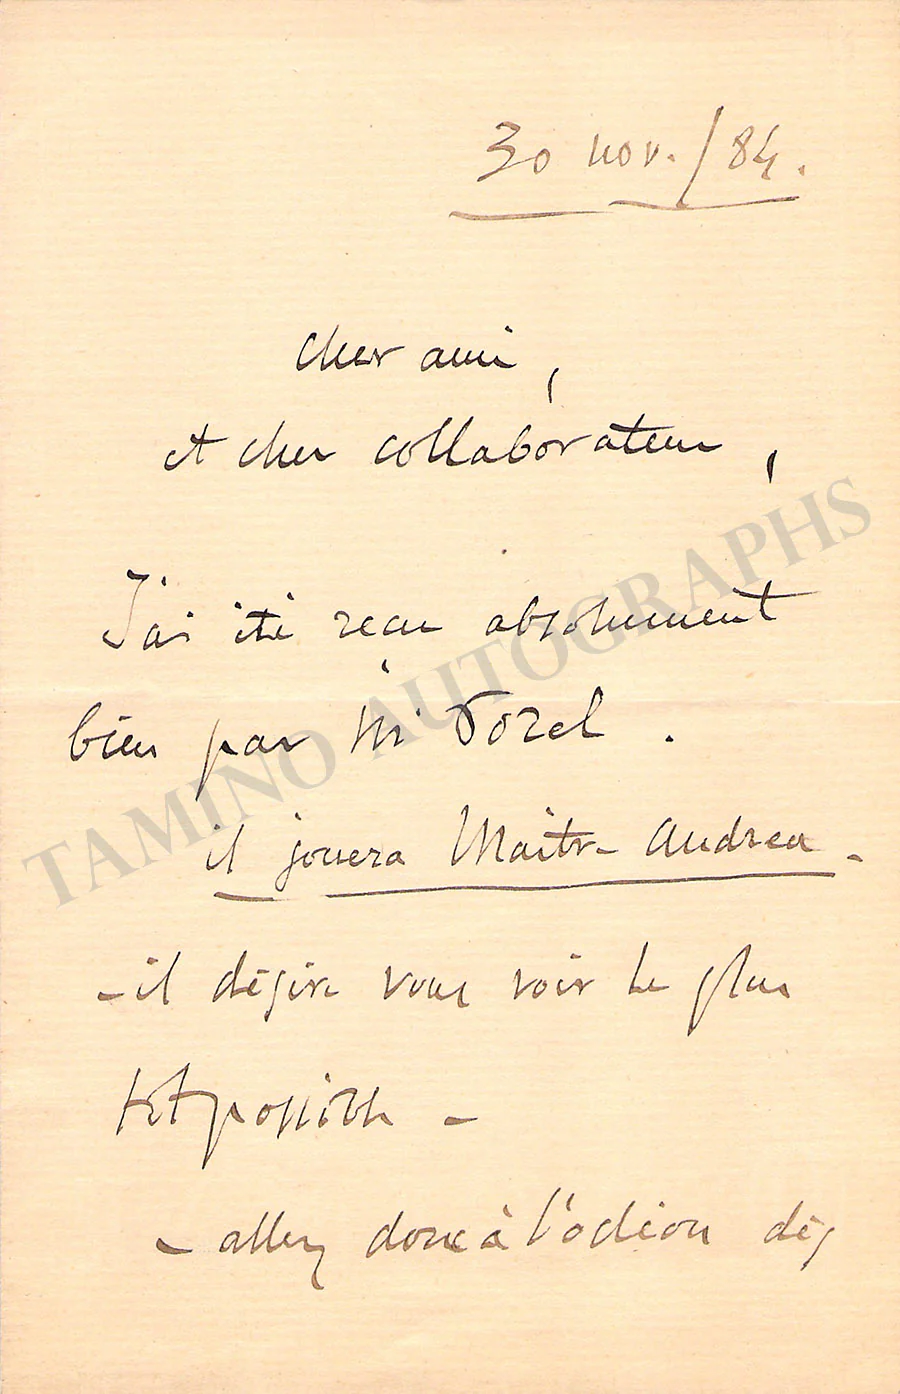 30 nov. / 84.
cher ami,
et cher collaborateur,
J'ai été reçu absolument
bien par Mr Porel.
il jouera Maître Andrea.
- il désire vous voir le plus
tôt possible -
- allez donc à l'odéon dès
TAMINO AUTOGRAPHS